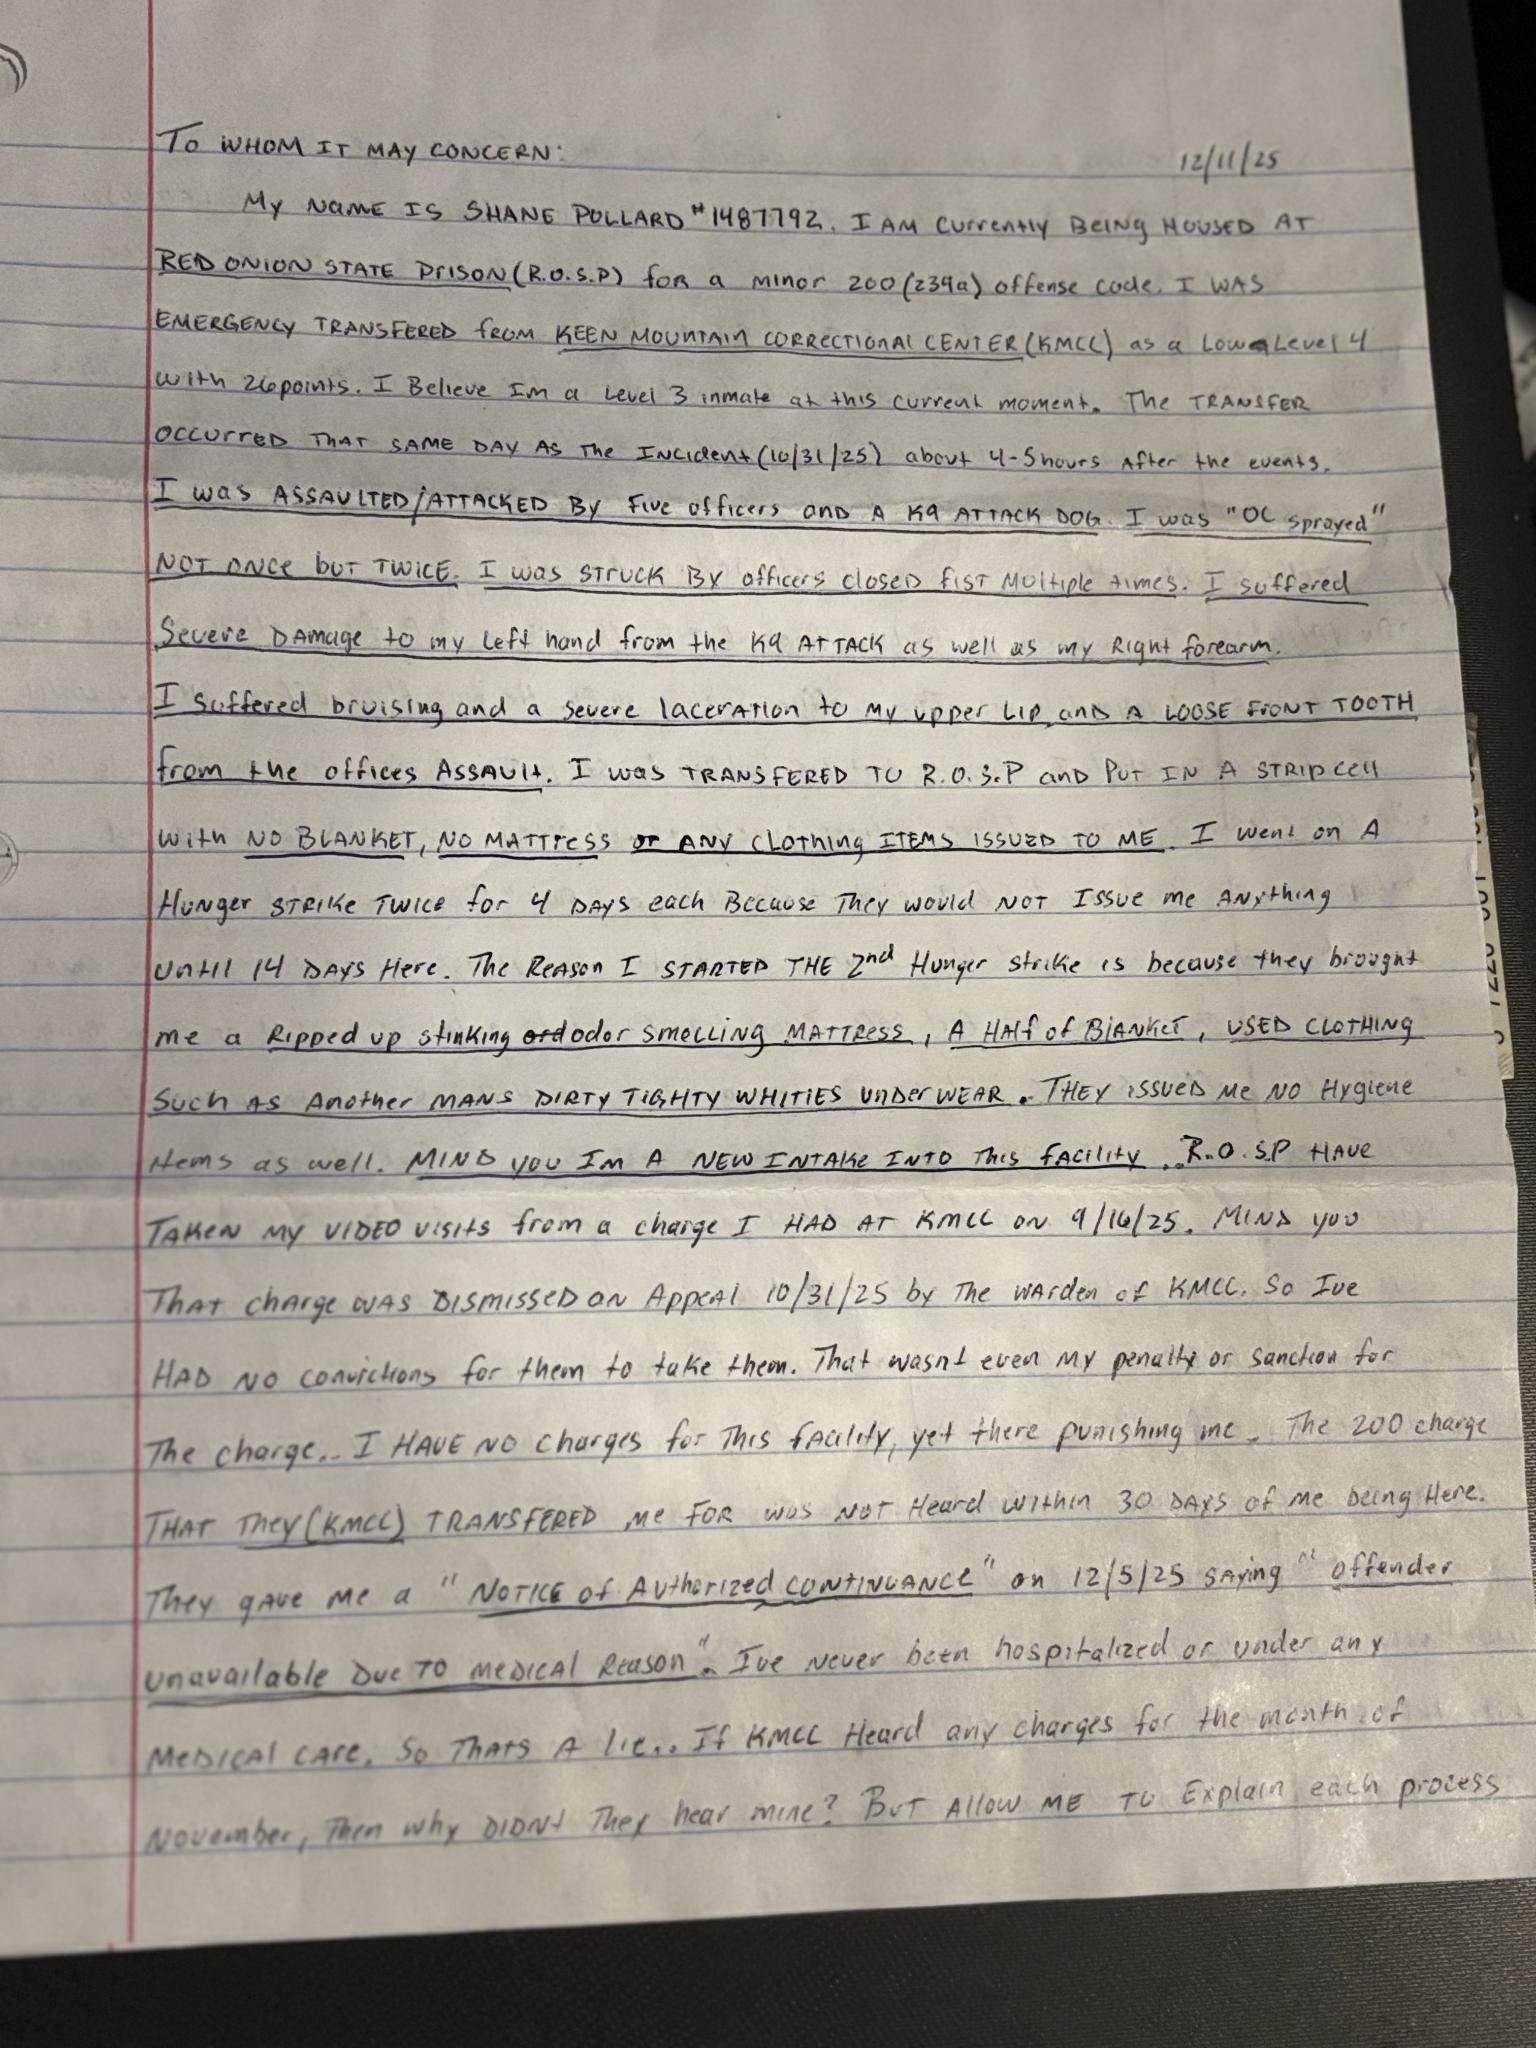 To WHOM IT MAY CONCERN:
12/11/25
My NAME IS SHANE POLLARD #1487792. I AM Currently BEING HOUSED AT
RED ONION STATE PRISON (R.O.S.P) for a minor 200 (239a) offense code. I WAS
EMERGENCY TRANSFERED from KEEN MOUNTAIN CORRECTIONAL CENTER (KMCC) as a Low Level 4
with 26 points. I Believe Im a Level 3 inmate at this current moment. The TRANSFER
OCCURRED THAT SAME DAY AS The INCident (10/31/25) about 4-5 hours After the events.
I was ASSAULTED/ATTACKED By Five officers and A K9 ATTACK DOG. I was "OC sprayed"
NOT ONCE but TWICE. I was STRUCK By officers closed fist Multiple times. I suffered
Severe DAmage to my Left hand from the K9 ATTACK as well as my Right forearm.
I suffered bruising and a severe laceration to My upper Lip and A LOOSE FRONT TOOTH
from the offices Assault. I was TRANSFERED TO R.O.S.P and Put IN A STRIP cell
with NO BLANKET, NO MATTress or ANY Clothing ITEMS ISSUED TO ME. I went on A
Hunger STRIKE TWICE for 4 DAYS each Because They would NOT Issue me Anything
until 14 DAYS Here. The Reason I STARTED THE 2nd Hunger strike is because they brought
me a Ripped up stinking ord odor SMELLING MATTRESS, A Half of BLANKET, USED CLOTHING
Such AS Another MANS DIRTY TIGHTY WHITIES UNDERWEAR. THEY issued Me NO Hygiene
items as well. MIND you Im A NEW INTAKE INTO This facility.. R.O.S.P HAVE
TAKEN MY VIDEO visits from a charge I HAD AT KMCC ON 9/16/25. MIND you
THAT charge WAS DISMISSED ON Appeal 10/31/25 by The WArden of KMCC. So Ive
HAD NO convictions for them to take them. That wasnt even My penalty or sanction for
The charge... I HAVE NO Charges for This facility, yet there punishing me. The 200 charge
THAT They (KMCC) TRANSFERED Me FOR was NOT Heard within 30 DAYS of Me being Here.
They gave Me a "NOTICE of Authorized CONTINUANCE" on 12/5/25 SAying "offender
unavailable Due TO MEDICAL Reason". Ive never been hospitalized or under any
MEDICAL care. So THATS A lie.. If KMCC Heard any charges for the month of
November, Then why DIDNt They hear mine? BUT Allow ME TO Explain each process